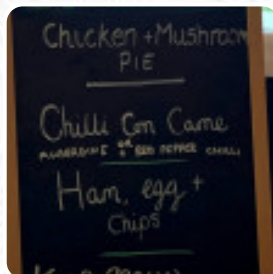 Chicken + Mushroom
PIE
Chilli Con Carne
AUBERGINE OR RED PEPPER CHILLI
Ham, egg +
Chips